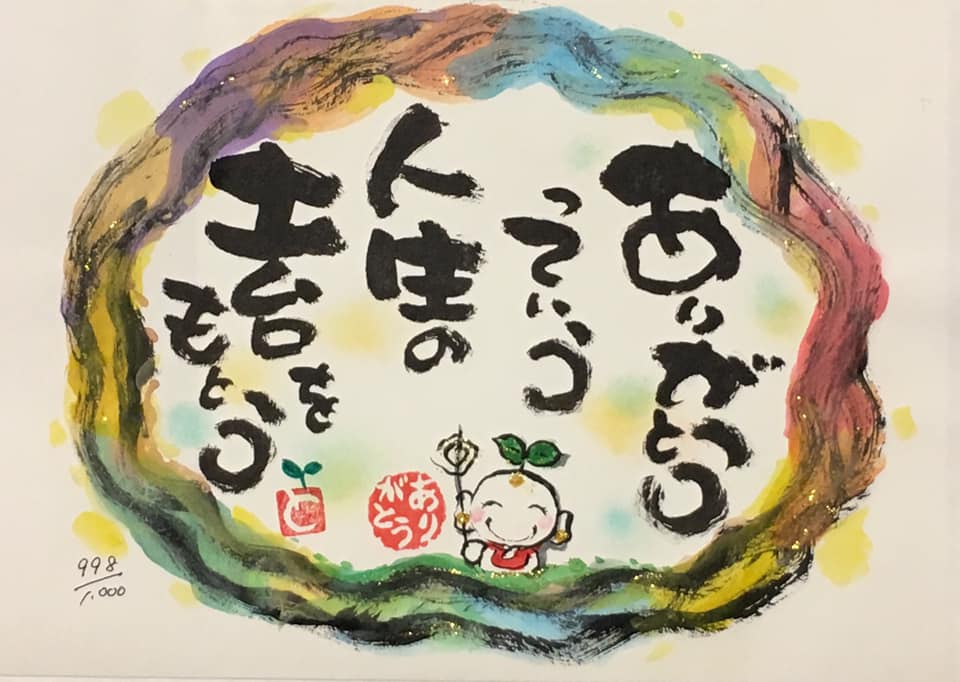 ありがとう
っていう
人生の
土台を
もとう
あり
がとう
998
1,000